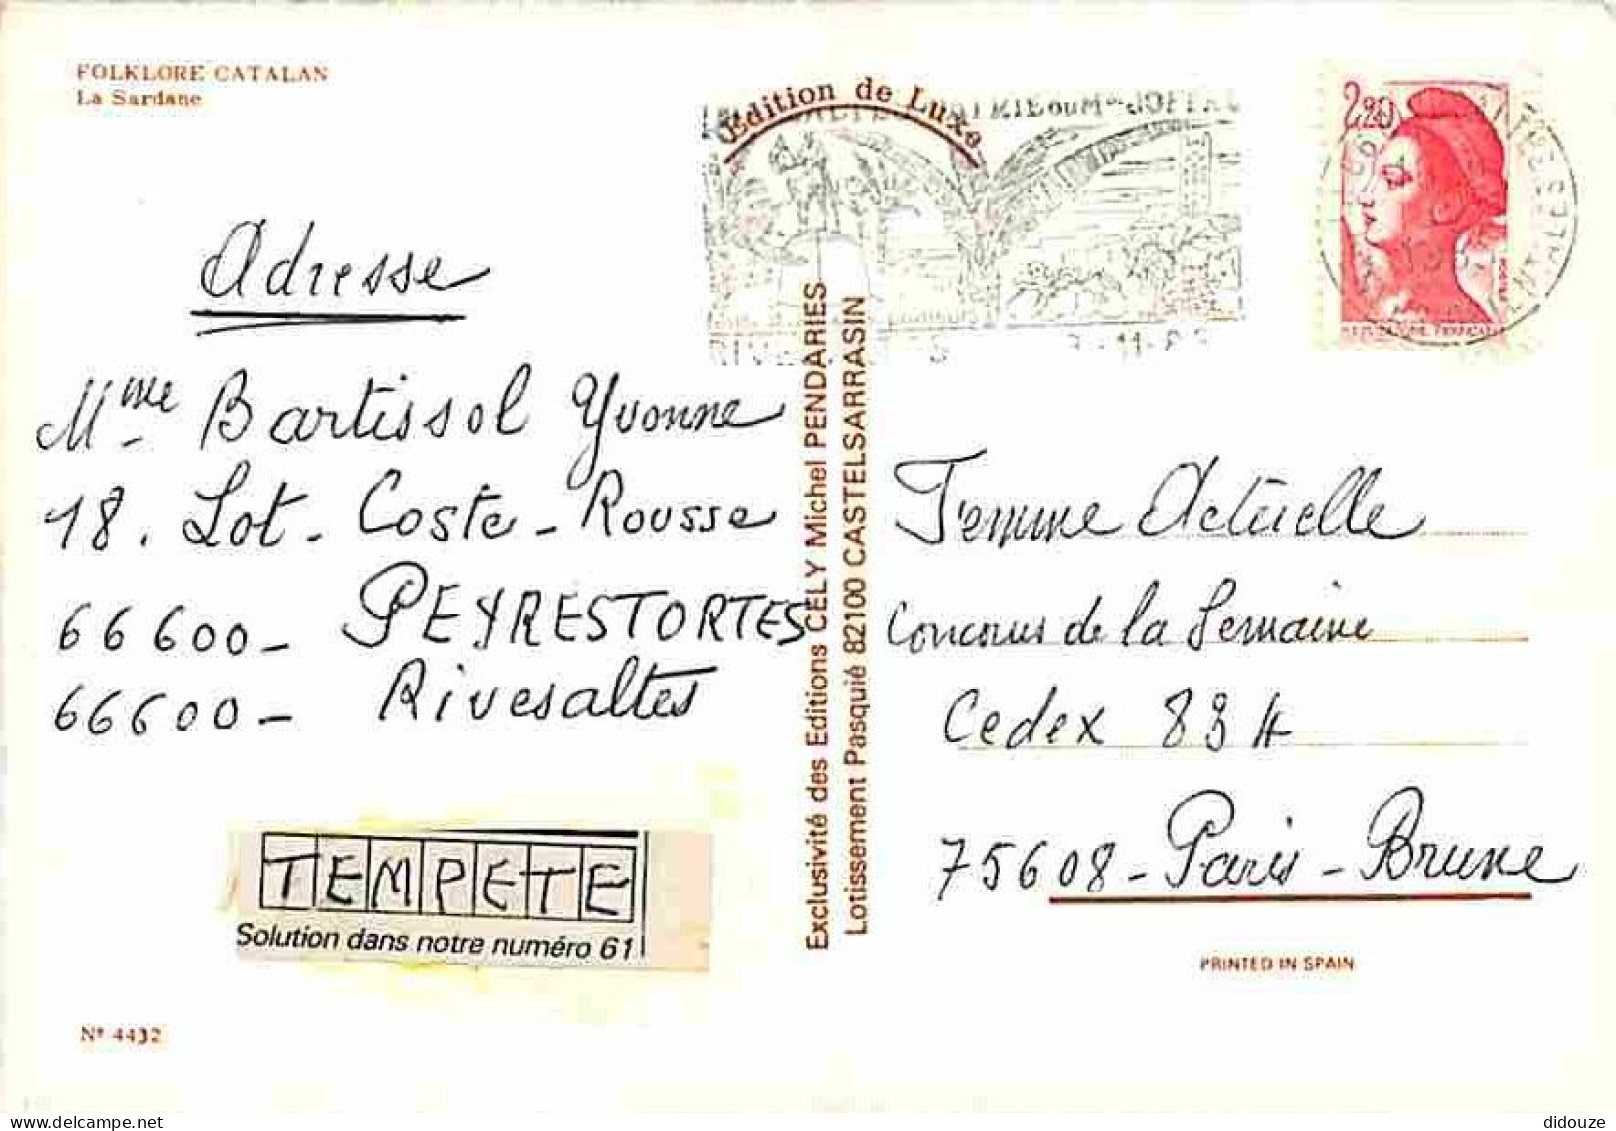 FOLKLORE CATALAN
La Sardane
Edition de Luxe
2,20
REPUBLIQUE FRANÇAISE
Adresse
Mme Bartissol Yvonne
18. Lot. Coste-Rousse
66600- PEYRESTORTES
66600- Rivesaltes
TEMPETE
Solution dans notre numéro 61
N° 4432
Exclusivité des Editions CELY Michel PENDARIES
Lotissement Pasquié 82100 CASTELSARRASIN
Femme Actuelle
Concours de la Semaine
Cedex 83 H
75608 - Paris - Brune
PRINTED IN SPAIN
didouze